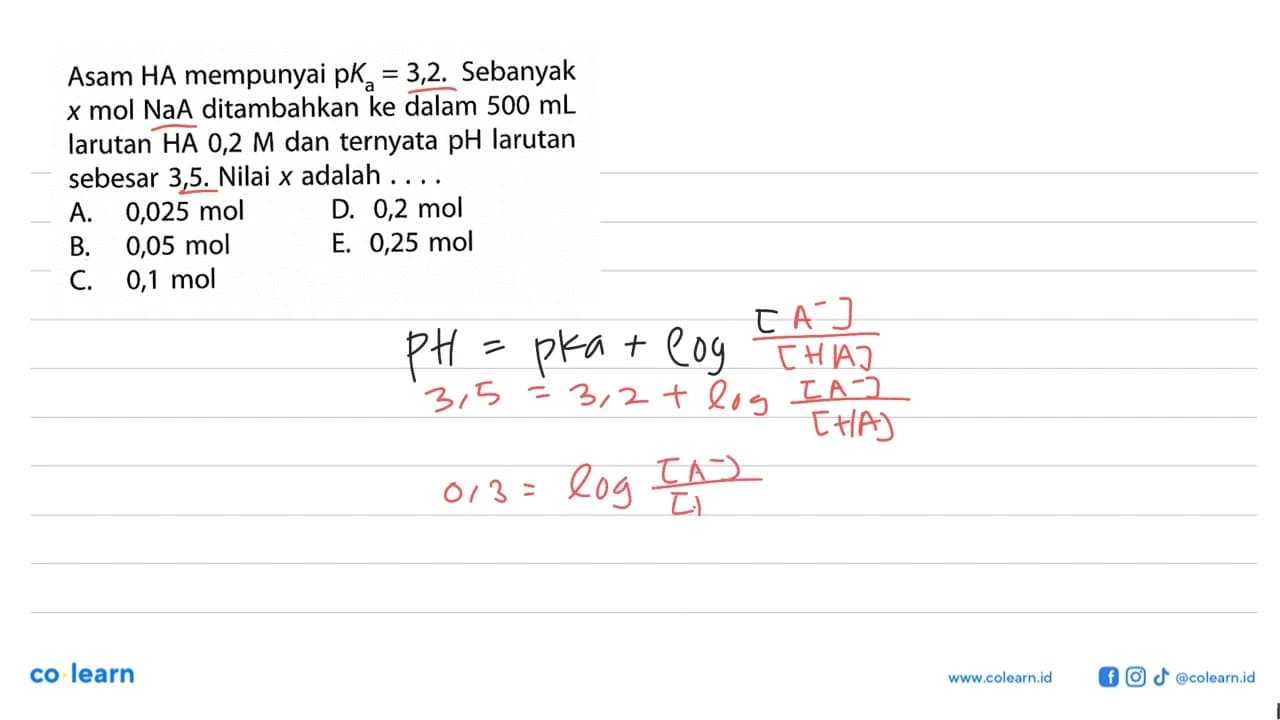 Asam HA mempunyai pKₐ = 3,2. Sebanyak
x mol NaA ditambahkan ke dalam 500 mL
larutan HA 0,2 M dan ternyata pH larutan
sebesar 3,5. Nilai x adalah . . . .
A. 0,025 mol D. 0,2 mol
B. 0,05 mol E. 0,25 mol
C. 0,1 mol
pH = pka + log [A⁻] / [HA]
3,5 = 3,2 + log [A⁻] / [HA]
0,3 = log [A⁻] / [
co learn
www.colearn.id @colearn.id